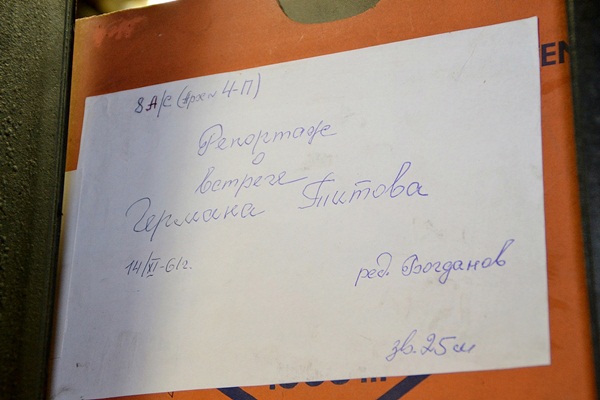 8 А/С (Архив 4-П)
Репортаж
о
встрече
Германа Титова
14/XI-61г.
ред. Богданов
зв. 25 м
EN
1000 m